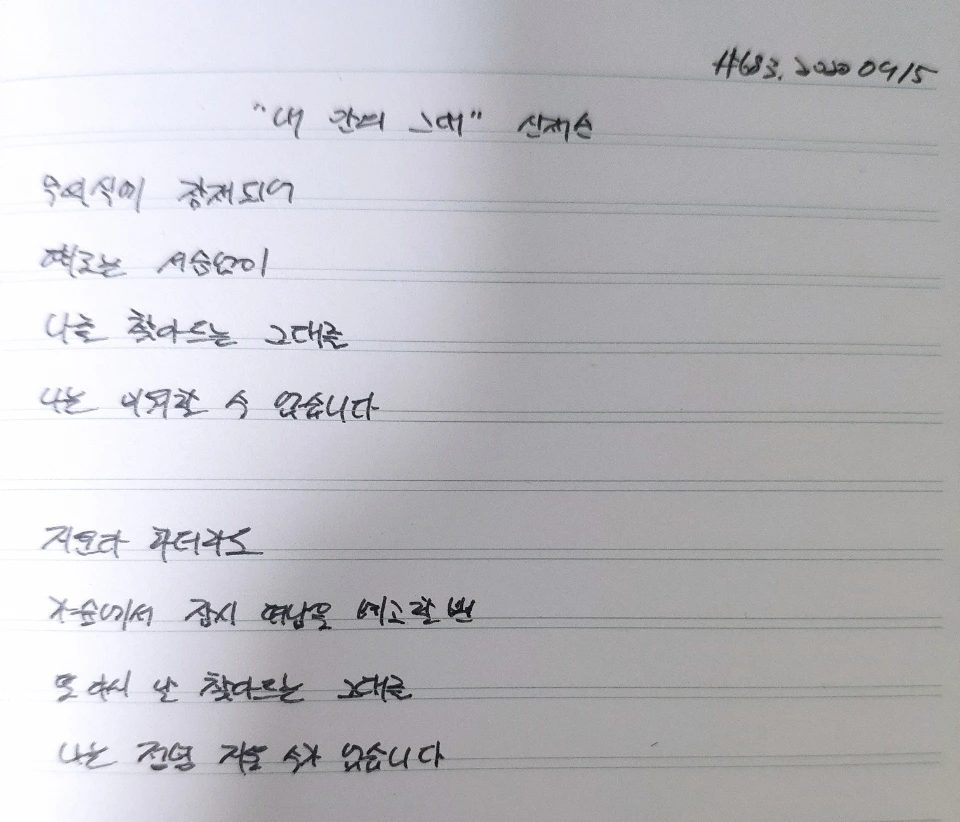 #683. 20200915
"내 안의 그대" 신재순
무의식에 잠재되어
때로는 서슴없이
나를 찾아드는 그대를
나는 외면할 수 없습니다
지운다 하더라도
가슴에서 잠시 떠남을 예고할 뿐
또 다시 날 찾아드는 그대를
나는 전혀 지울 수가 없습니다